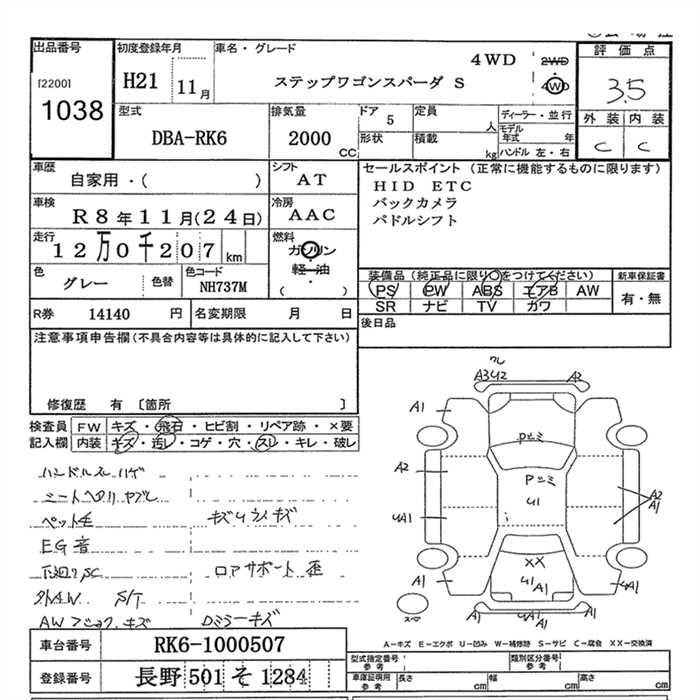 出品番号
[2200]
1038
初度登録年月
H21 11月
車名・グレード
4WD
ステップワゴンスパーダ S
2WD
4WD
評価点
3.5
外装 内装
C C
型式
DBA-RK6
排気量
2000
CC
ドア
5
形状
定員
人
積載
kg
ディーラー・並行
モデル年式 年
ハンドル 左・右
車歴
自家用・( )
シフト
AT
車検
R8年11月(24日)
冷房
AAC
走行
12万0千207
km
燃料
ガソリン
軽・油
( ・ )
色
グレー
色替
色コード
NH737M
セールスポイント (正常に機能するものに限ります)
HID ETC
バックカメラ
パドルシフト
装備品(純正品に限り○をつけてください)
PS PW ABS エアB AW
SR ナビ TV カワ
新車保証書
有・無
R券 14140 円
名変期限 月 日
後日品
注意事項申告欄(不具合内容等は具体的に記入して下さい)
修復歴 有 〔箇所 〕
検査員記入欄
FW キズ・飛石・ヒビ割・リペア跡・×要
内装 キズ・汚レ・コゲ・穴・スレ・キレ・破レ
ハンドルスレ ハゲ
シートヘタリ ヤブレ
ペット毛
キズ
EG音
下廻りSC
ロアサポート 歪
外AW S/T
AW キズ
Dミラーキズ
A3U2
A2
A1
A1
Pミミ
A2
Pミミ
U1
UA1
A2
A1
XX
U1
A1
A1
UA1
A1
A1
A-キズ E-エクボ U-凹み W-補修跡 S-サビ C-腐食 XX-交換済
車台番号
RK6-1000507
登録番号
長野 501 そ 1284
型式指定番号
参考
類別区分番号
参考
車庫証明用
参考
長さ cm
幅 cm
高さ cm